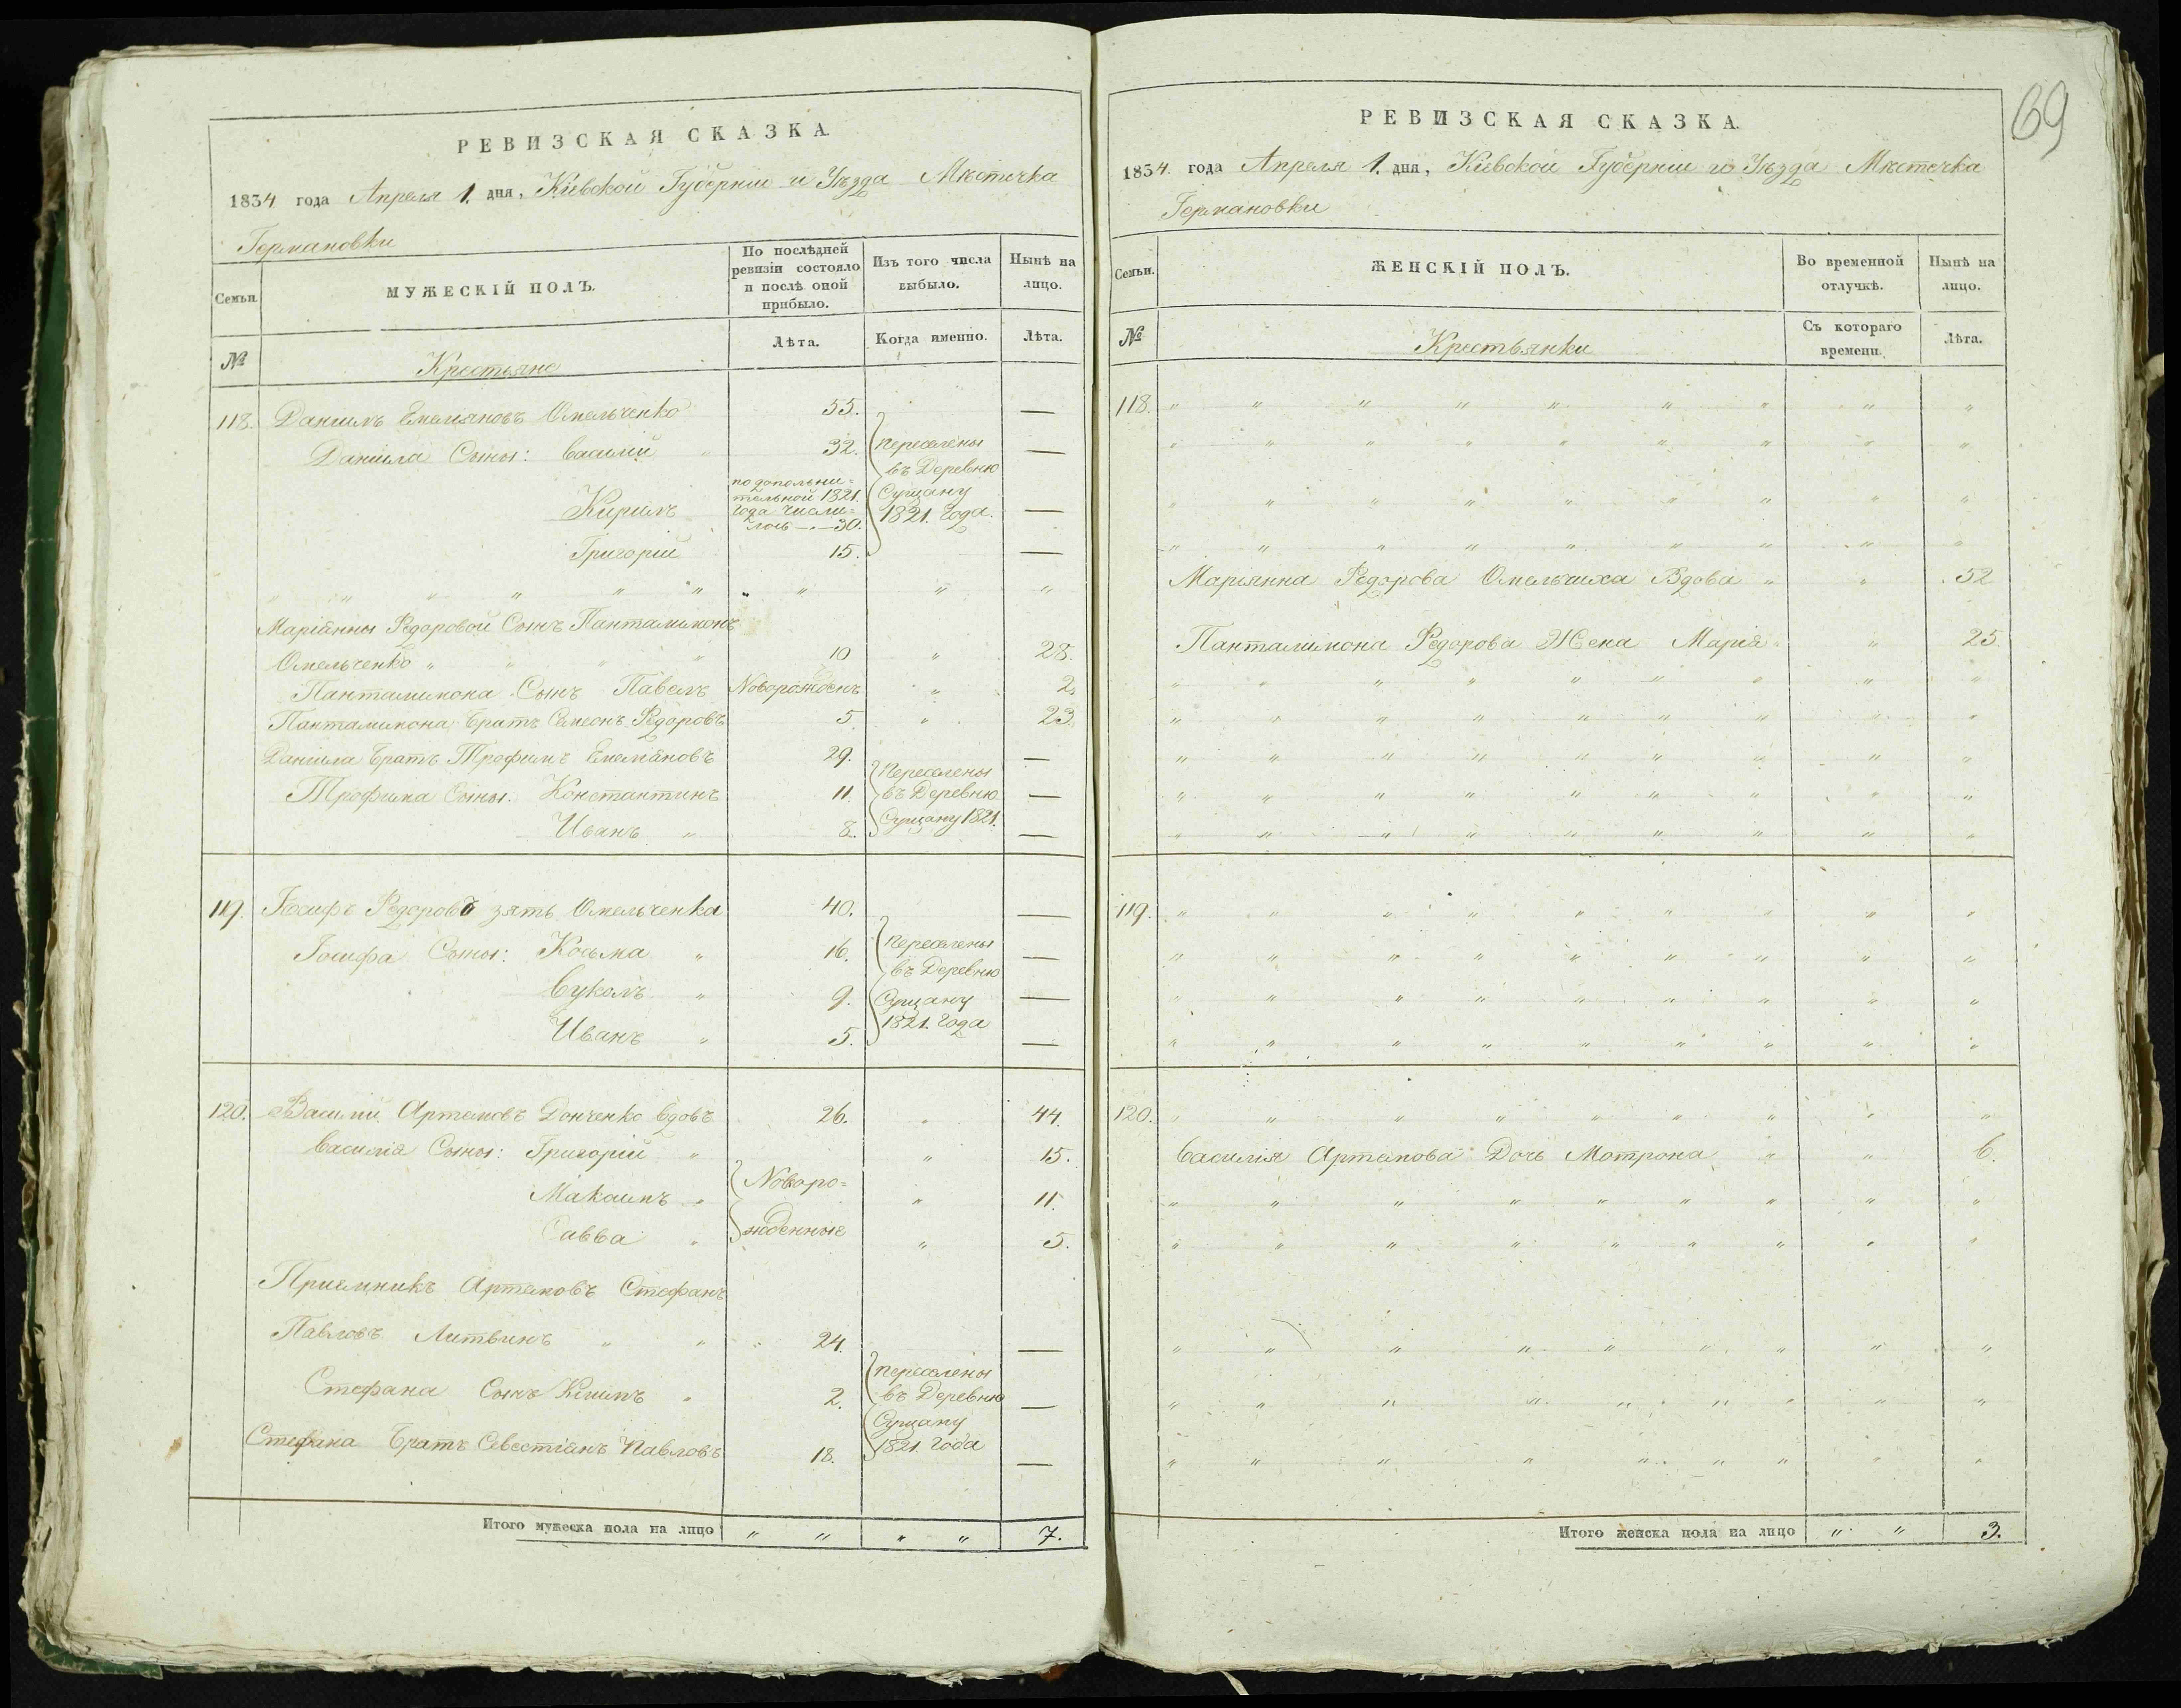 РЕВИЗСКАЯ СКАЗКА.
1834 года Апреля 1. дня, Кіевской Губерніи и Уѣзда Мѣстечка
Германовки
Семьи.
МУЖЕСКІЙ ПОЛЪ.
По послѣдней
ревизіи состояло
и послѣ оной
прибыло.
Изъ того числа
выбыло.
Нынѣ на
лицо.
№
Крестьяне
Лѣта.
Когда именно.
Лѣта.
118. Даниилъ Емелняновъ Омельченко 55. —
Даниила Сыны: Василій " 32. —
Переселены
въ Деревню
Сущану
1821. Года.
Кирилъ
по дополни=
тельной 1821.
года числи=
лось —.—30. —
Григорій 15. —
" " " " " " " " " "
Маріанны Ѳедоровой Сынъ Панталимонъ
Омельченко " " " " 10 " 28.
Панталимона Сынъ Павелъ Новорожденъ " 2.
Панталимона Братъ Симеонъ Ѳедоровъ 5 " 23.
Даниила Братъ Трофимъ Емеліановъ 29. —
Трофима Сыны. Константинъ 11. —
Иванъ " 8. —
Переселены
въ Деревню
Сущану 1821.
119. Іосифъ Ѳедоровъ зять Омельченка 40. —
Іосифа Сыны: Козьма " 16. —
Вуколъ " 9. —
Иванъ " 5. —
Переселены
въ Деревню
Сущану
1821. Года
120. Василій Артемовъ Донченко вдовъ 26. " 44.
Василія Сыны: Григорій " " 15.
Макаимъ " " 11.
Савва " " 5.
Новоро=
жденные
Приемникъ Артемовъ Стефанъ
Павловъ Литвинъ " " " 24. —
Стефана Сынъ Климъ " 2. —
Стефана Братъ Севестіанъ Павловъ 18. —
Переселены
въ Деревню
Сущану
1821. Года
Итого мужеска пола на лицо " " " " 7.
69
РЕВИЗСКАЯ СКАЗКА.
1834. года Апреля 1. дня, Кіевской Губерніи и Уѣзда Мѣстечка
Германовки
Семьи.
ЖЕНСКІЙ ПОЛЪ.
Во временной
отлучкѣ.
Нынѣ на
лицо.
№
Крестьянки
Съ котораго
времени.
Лѣта.
118. " " " " " " " " "
" " " " " " " " "
" " " " " " " " "
" " " " " " " " "
Маріянна Ѳедорова Омельчиха Вдова " " 52
Панталимона Ѳедорова Жена Марія " " 25
" " " " " " " " "
" " " " " " " " "
" " " " " " " " "
" " " " " " " " "
" " " " " " " " "
119. " " " " " " " " "
" " " " " " " " "
" " " " " " " " "
" " " " " " " " "
120. " " " " " " " " "
Василія Артемова Дочь Мотрона " " 6.
" " " " " " " " "
" " " " " " " " "
" " " " " " " " "
" " " " " " " " "
" " " " " " " " "
Итого женска пола на лицо " " 3.